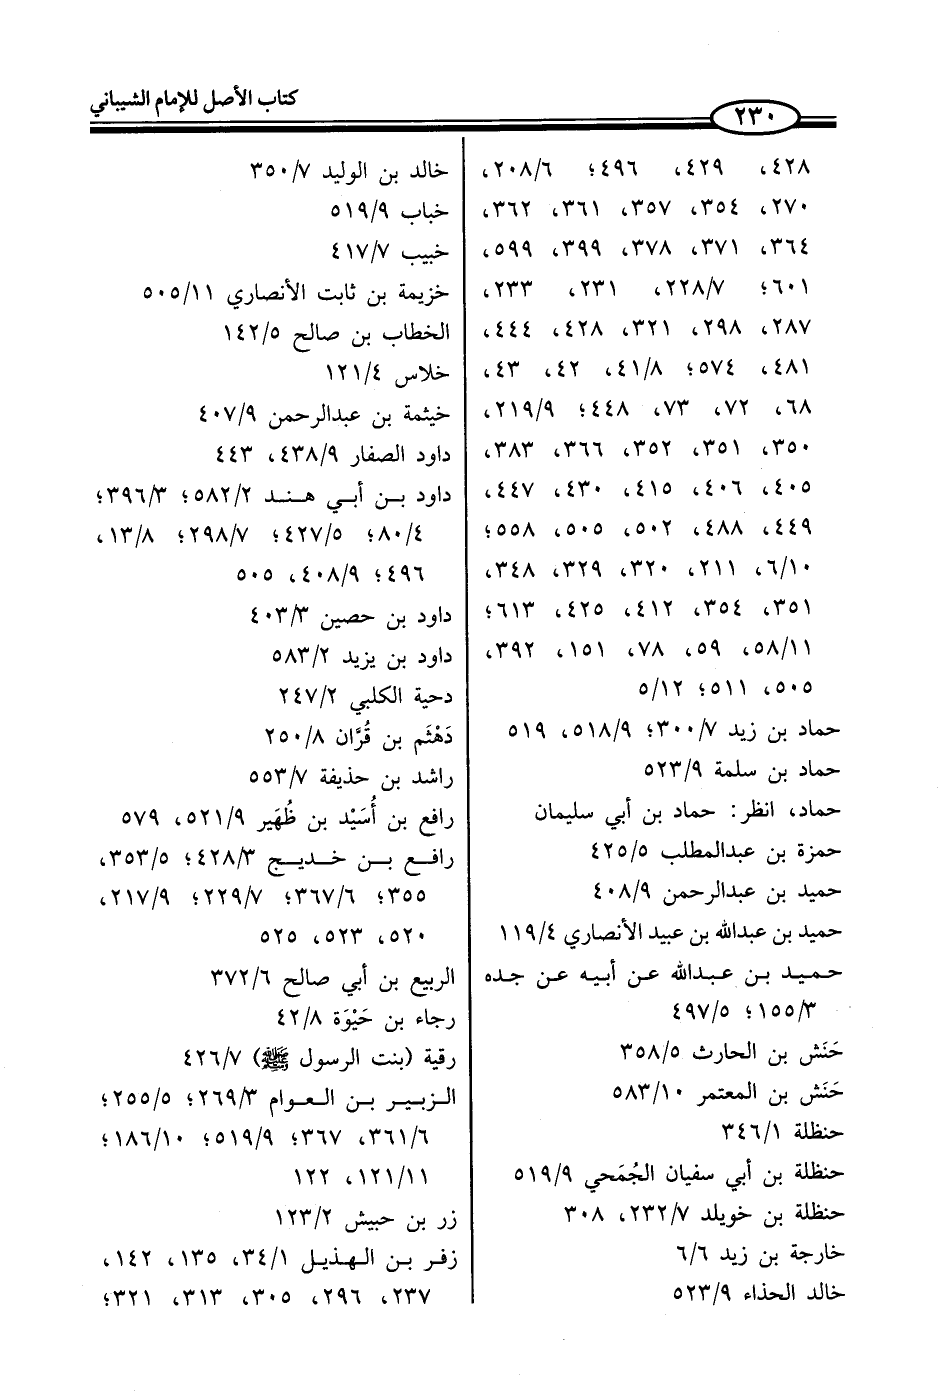 ٢٣٠
كتاب الأصل للإمام الشيباني
٤٢٨، ٤٢٩، ٤٩٦؛ ٢٠٨/٦،
٢٧٠، ٣٥٤، ٣٥٧، ٣٦١، ٣٦٢،
٣٦٤، ٣٧١، ٣٧٨، ٣٩٩، ٥٩٩،
٦٠١؛ ٢٢٨/٧، ٢٣١، ٢٣٣،
٢٨٧، ٢٩٨، ٣٢١، ٤٢٨، ٤٤٤،
٤٨١، ٥٧٤؛ ٤١/٨، ٤٢، ٤٣،
٦٨، ٧٢، ٧٣، ٤٤٨؛ ٢١٩/٩،
٣٥٠، ٣٥١، ٣٥٢، ٣٦٦، ٣٨٣،
٤٠٥، ٤٠٦، ٤١٥، ٤٣٠، ٤٤٧،
٤٤٩، ٤٨٨، ٥٠٢، ٥٠٥، ٥٥٨؛
٦/١٠، ٢١١، ٣٢٠، ٣٢٩، ٣٤٨،
٣٥١، ٣٥٤، ٤١٢، ٤٢٥، ٦١٣؛
٥٨/١١، ٥٩، ٧٨، ١٥١، ٣٩٢،
٥٠٥، ٥١١؛ ٥/١٢
حماد بن زيد ٣٠٠/٧؛ ٥١٨/٩، ٥١٩
حماد بن سلمة ٥٢٣/٩
حماد، انظر: حماد بن أبي سليمان
حمزة بن عبدالمطلب ٤٢٥/٥
حميد بن عبدالرحمن ٤٠٨/٩
حميد بن عبدالله بن عبيد الأنصاري ١١٩/٤
حميد بن عبدالله عن أبيه عن جده
١٥٥/٣؛ ٤٩٧/٥
حَنَش بن الحارث ٣٥٨/٥
حَنَش بن المعتمر ٥٨٣/١٠
حنظلة ٣٤٦/١
حنظلة بن أبي سفيان الجُمَحي ٥١٩/٩
حنظلة بن خويلد ٢٣٢/٧، ٣٠٨
خارجة بن زيد ٦/٦
خالد الحذاء ٥٢٣/٩
خالد بن الوليد ٣٥٠/٧
خباب ٥١٩/٩
خبيب ٤١٧/٧
خزيمة بن ثابت الأنصاري ٥٠٥/١١
الخطاب بن صالح ١٤٢/٥
خلاس ١٢١/٤
خيثمة بن عبدالرحمن ٤٠٧/٩
داود الصفار ٤٣٨/٩، ٤٤٣
داود بن أبي هند ٥٨٢/٢؛ ٣٩٦/٣؛
٨٠/٤؛ ٤٢٧/٥؛ ٢٩٨/٧؛ ١٣/٨،
٤٩٦؛ ٤٠٨/٩، ٥٠٥
داود بن حصين ٤٠٣/٣
داود بن يزيد ٥٨٣/٢
دحية الكلبي ٢٤٧/٢
دَهْثَم بن قُرَّان ٢٥٠/٨
راشد بن حذيفة ٥٥٣/٧
رافع بن أُسَيْد بن ظُهَير ٥٢١/٩، ٥٧٩
رافع بن خديج ٤٢٨/٣؛ ٣٥٣/٥،
٣٥٥؛ ٣٦٧/٦؛ ٢٢٩/٧؛ ٢١٧/٩،
٥٢٠، ٥٢٣، ٥٢٥
الربيع بن أبي صالح ٣٧٢/٦
رجاء بن حَيْوَة ٤٢/٨
رقية (بنت الرسول ﷺ) ٤٢٦/٧
الزبير بن العوام ٢٦٩/٣؛ ٢٥٥/٥؛
٣٦١/٦، ٣٦٧؛ ٥١٩/٩؛ ١٨٦/١٠؛
١٢١/١١، ١٢٢
زر بن حبيش ١٢٣/٢
زفر بن الهذيل ٣٤/١، ١٣٥، ١٤٢،
٢٣٧، ٢٩٦، ٣٠٥، ٣١٣، ٣٢١؛